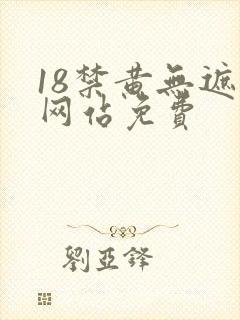 18禁黄無遮
网佔免費
劉亞鋒